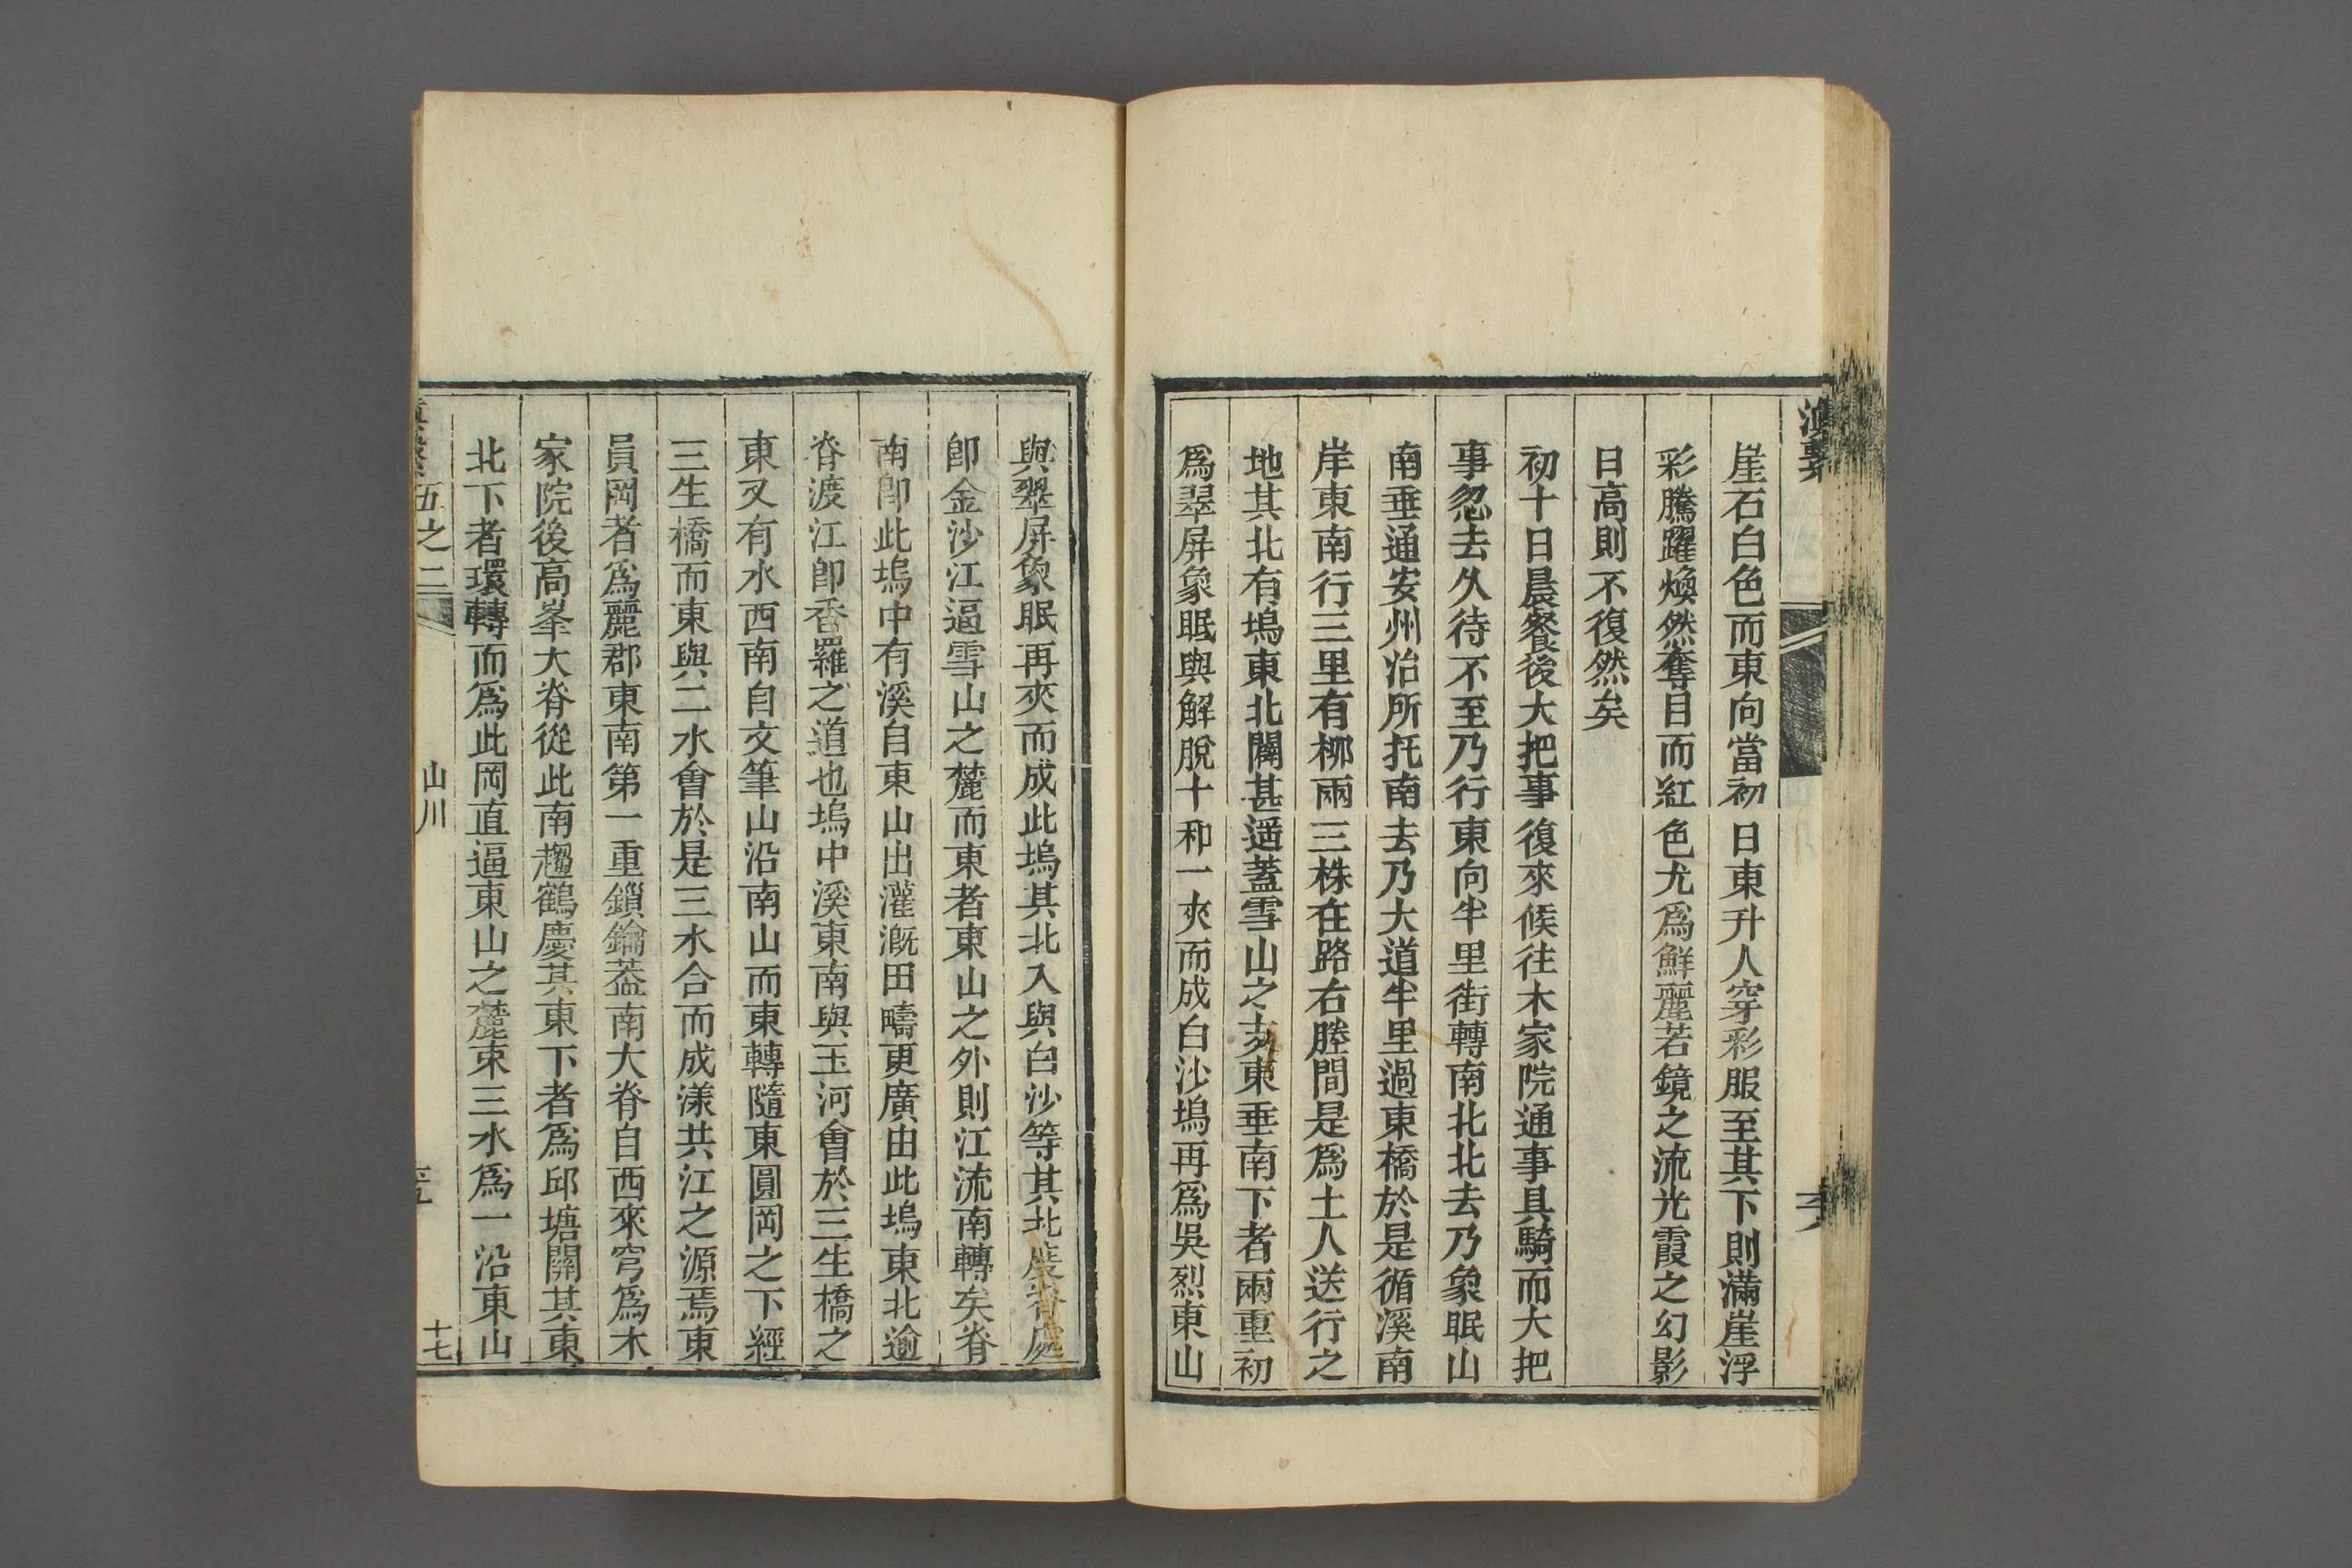 滇繫
崖石白色而東向當初日東升人穿彩服至其下則滿崖浮
彩騰躍煥然奪目而紅色尤爲鮮麗若鏡之流光霞之幻影
日高則不復然矣
初十日晨餐後大把事復來候往木家院通事具騎而大把
事忽去久待不至乃行東向半里街轉南北北去乃象眠山
南垂通安州治所托南去乃大道半里過東橋於是循溪南
岸東南行三里有柳兩三株在路右塍間是爲土人送行之
地其北有塢東北闢甚遥蓋雪山之支東垂南下者兩重初
爲翠屏象眠與解脫十和一夾而成白沙塢再爲吳烈東山
與翠屏象眠再夾而成此塢其北入與白沙等其北度脊處
卽金沙江逼雪山之麓而東者東山之外則江流南轉矣脊
南卽此塢中有溪自東山出灌漑田疇更廣由此塢東北逾
脊渡江卽香羅之道也塢中溪東南與玉河會於三生橋之
東又有水西南自文筆山沿南山而東轉隨東圓岡之下經
三生橋而東與二水會於是三水合而成漾共江之源焉東
員岡者爲麗郡東南第一重鎖鑰葢南大脊自西來穹爲木
家院後高峯大脊從此南趨鶴慶其東下者爲邱塘關其東
北下者環轉而爲此岡直逼東山之麓束三水爲一沿東山
五之二
山川
十七